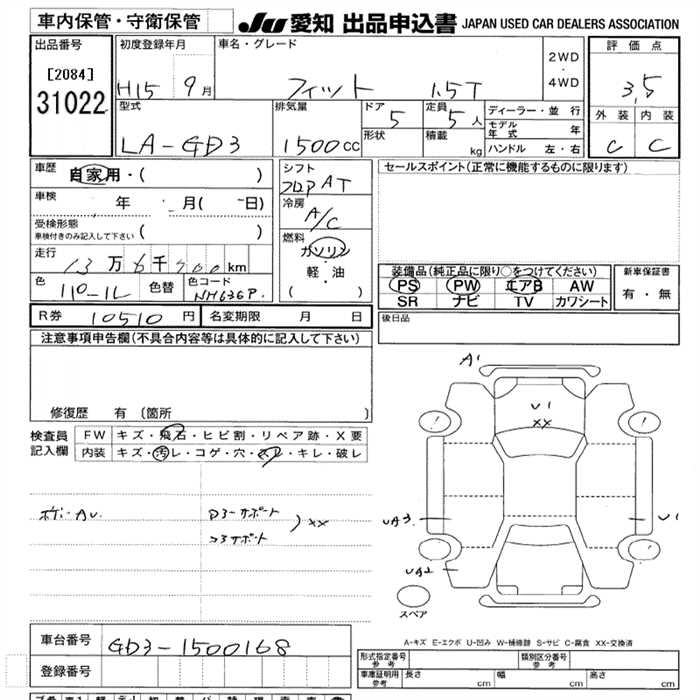 車内保管・守衛保管
JU 愛知 出品申込書 JAPAN USED CAR DEALERS ASSOCIATION
出品番号 初度登録年月 車名・グレード 2WD・4WD 評価点
[2084]
31022
H15 9月 フィット 1.5T 3.5
外装 内装
C C
型式 排気量 ドア 5 定員 5人 ディーラー・並行
LA-GD3 1500cc 形状 積載 kg モデル年式 年
ハンドル 左・右
車歴 自家用・( )
シフト フロア AT
セールスポイント(正常に機能するものに限ります)
車検 年 月( 日)
冷房 A/C
受検形態 ( )
車検付きのみ記入して下さい
燃料 ガソリン・軽・油 ( )
走行 13万6千700km
色 110-1L 色替 色コード NH636P.
装備品(純正品に限り○をつけてください) 新車保証書
PS PW エアB AW 有・無
SR ナビ TV カワシート
R券 10510円 名変期限 月 日
後日品
注意事項申告欄(不具合内容等は具体的に記入して下さい)
修復歴 有 (箇所 )
検査員記入欄
FW キズ・飛石・ヒビ割・リペア跡・X要
内装 キズ・汚レ・コゲ・穴・スレ・キレ・破レ
A1
U1
XX
UA3
U1
UA2
スペア
XX
A-キズ E-エクボ U-凹み W-補修跡 S-サビ C-腐食 XX-交換済
車台番号 GD3-1500168
登録番号
形式指定番号 参考 類別区分番号 参考
車庫証明用 参考 長さ cm 幅 cm 高さ cm